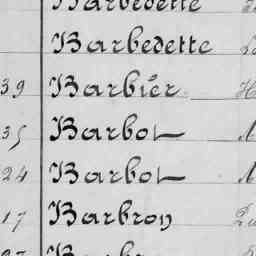 Barbedette
Barbedette
39 Barbier
35 Barbot
24 Barbot
17 Barbron